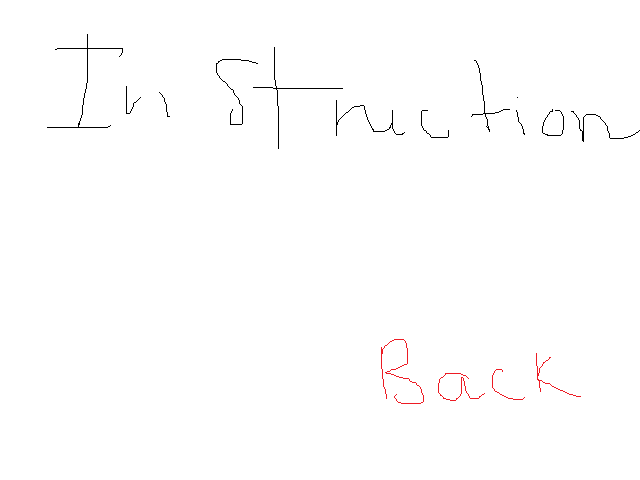 Instruction
Back